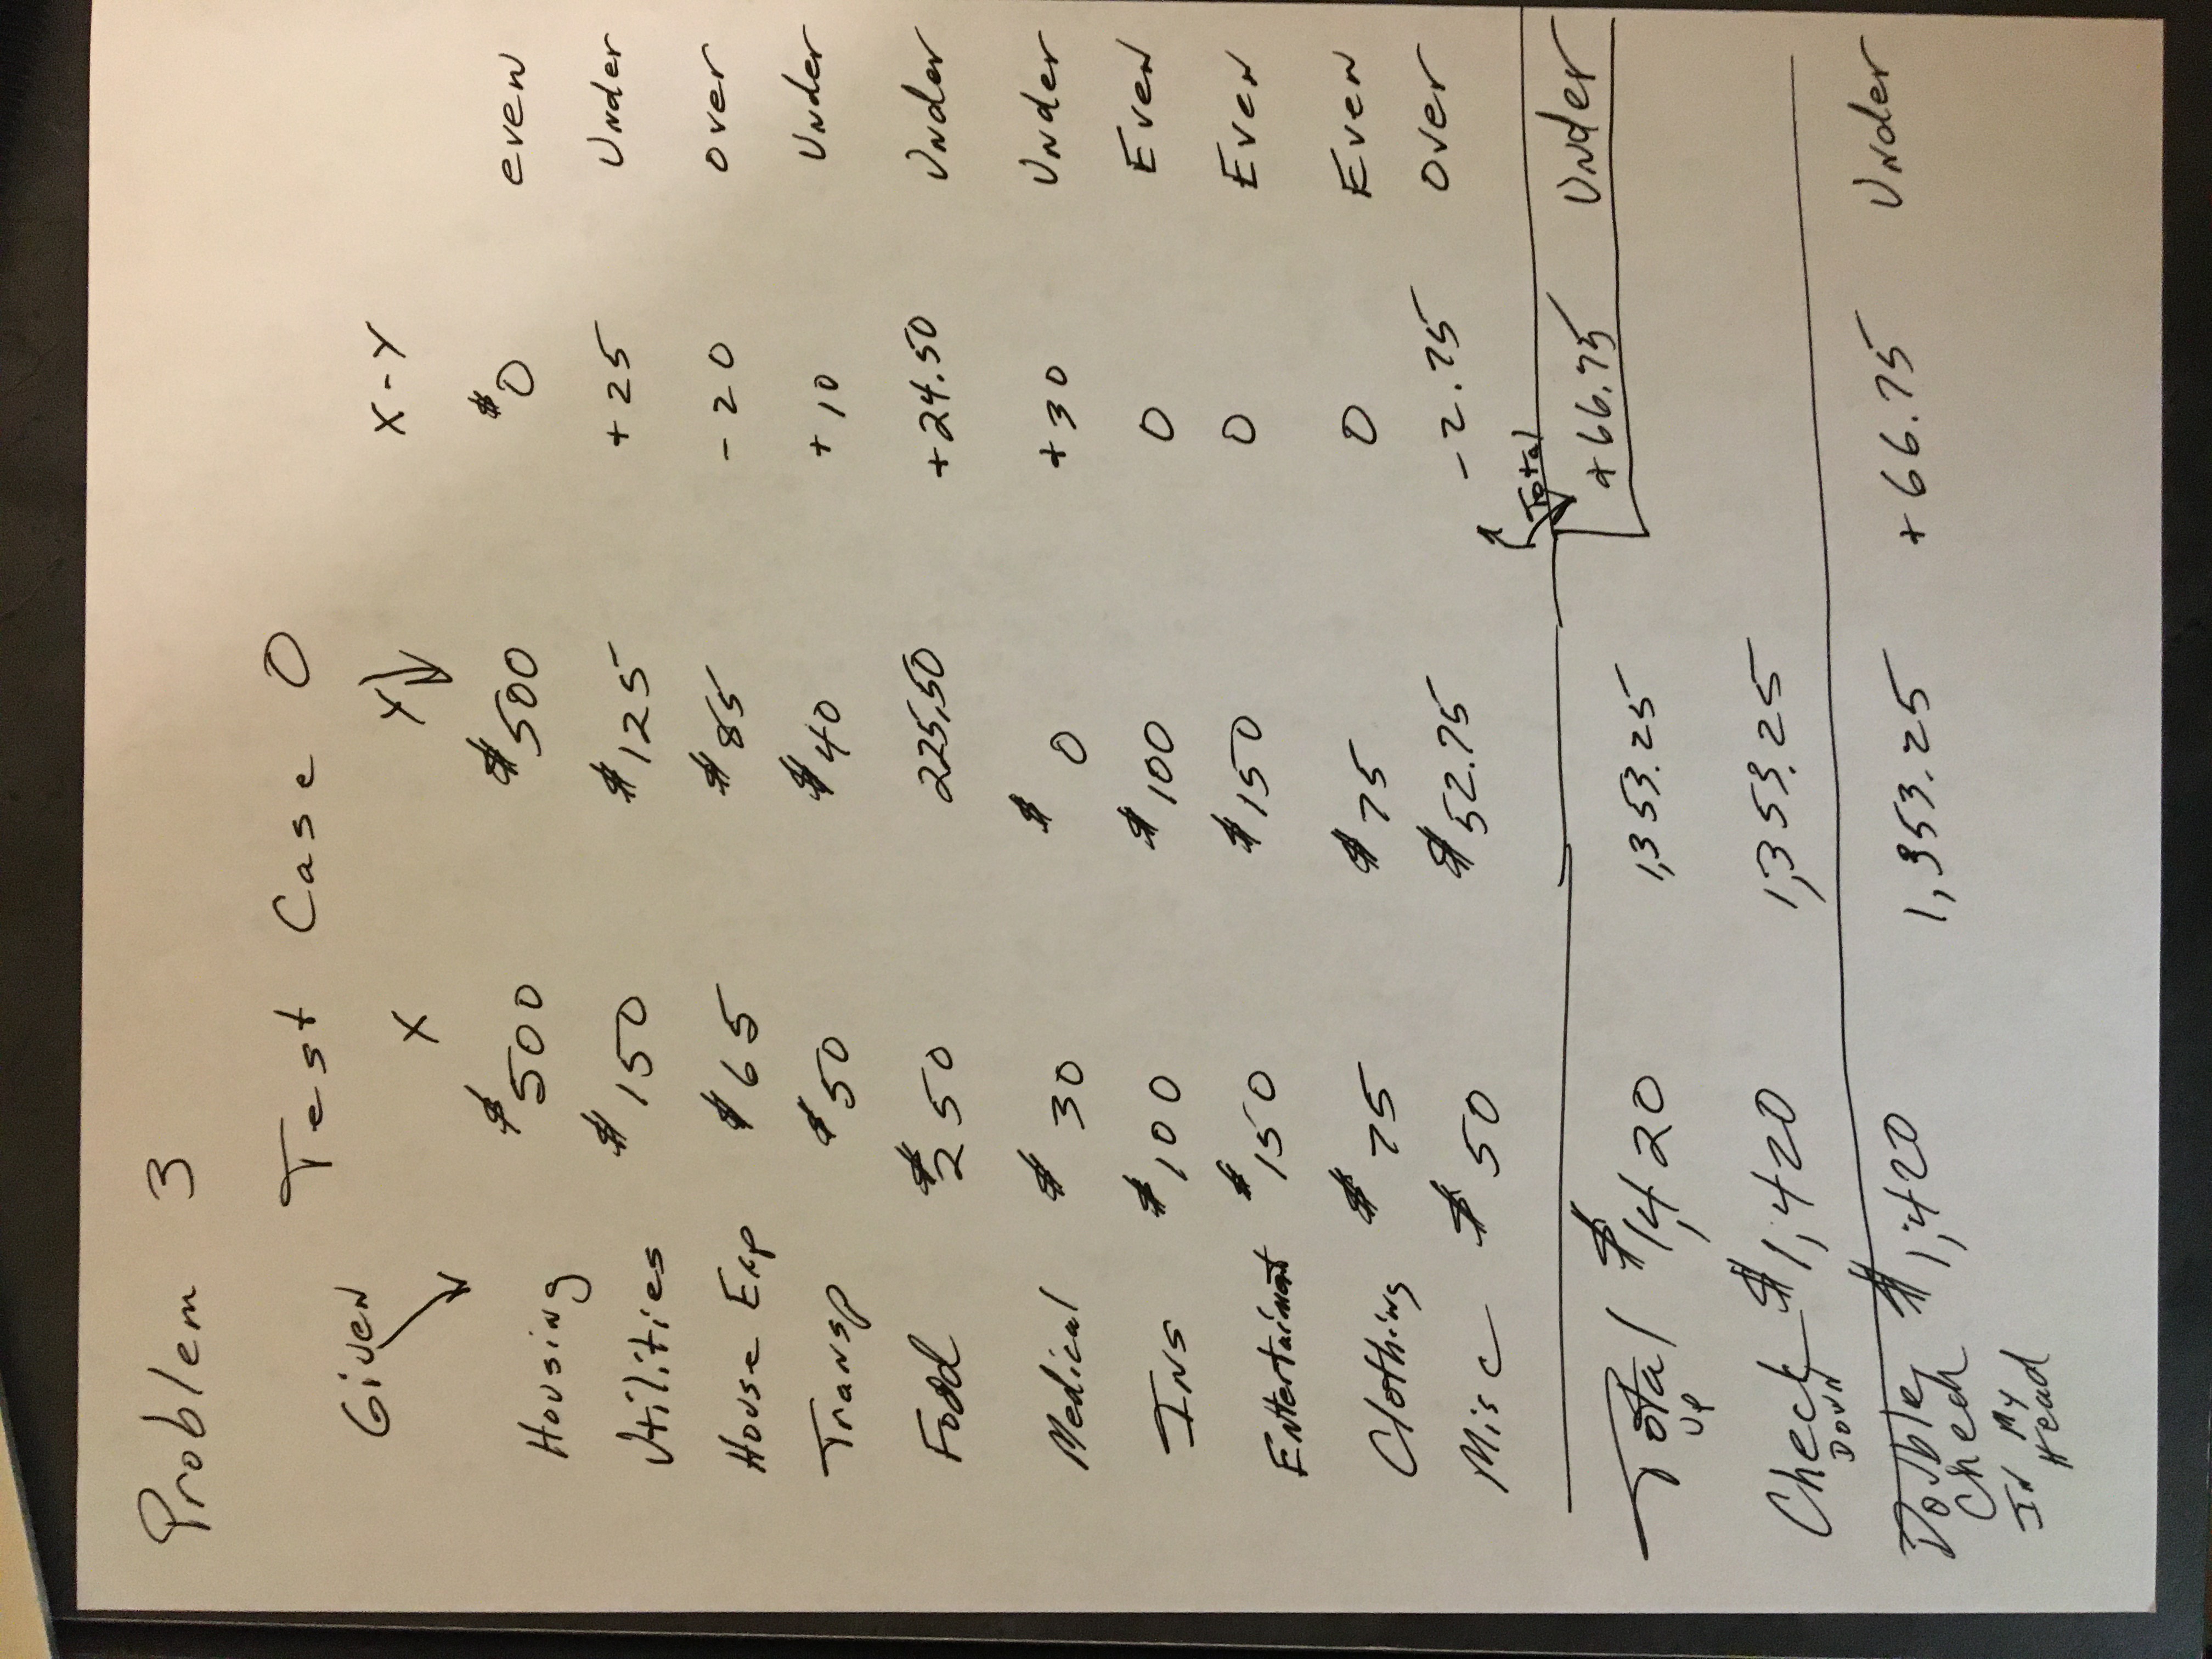 Problem 3
Test Case 0
Given
X Y X-Y
Housing $500 $500 $0 even
Utilities $150 $125 +25 Under
House Exp $65 $85 -20 over
Transp $50 $40 +10 Under
Food $250 225.50 +24.50 Under
Medical $30 $0 +30 Under
Ins $100 $100 0 Even
Entertaiment $150 $150 0 Even
Clothing $75 $75 0 Even
Misc $50 $52.75 -2.75 over
Total
+66.75 Under
Total $1,420 1,353.25
Up
Check $1,420 1,353.25
Down
Double $1,420 1,353.25 +66.75 Under
Check
In My
Head